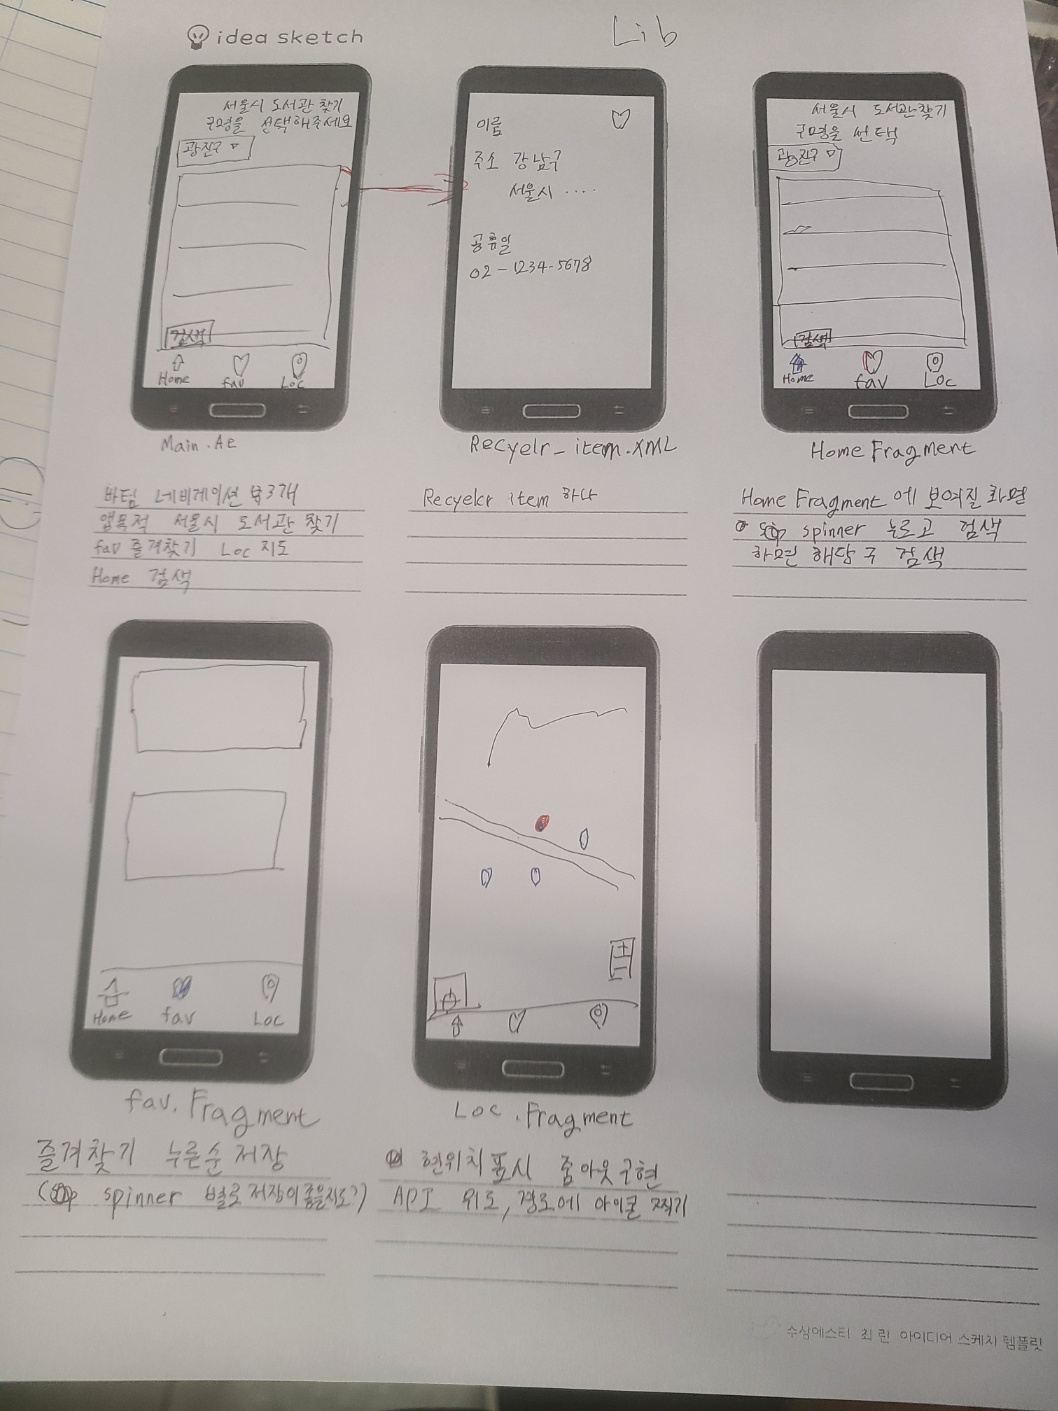 idea sketch
Lib
서울시 도서관 찾기
구명을 선택해주세요
광진구 ▽
검색
Home fav Loc
Main.Ae
바텀 네비게이션 뷰 3개
앱목적 서울시 도서관 찾기
fav 즐겨찾기 Loc 지도
Home 검색
이름
주소 강남구
서울시 ....
공휴일
02-1234-5678
Recyelr_item.XML
Recyelcr item 하나
서울시 도서관찾기
구명을 선택
광진구 ▽
검색
Home fav Loc
Home Fragment
Home Fragment 에 보여질 화면
spinner 누르고 검색
하면 해당 구 검색
Home fav Loc
fav. Fragment
즐겨찾기 누른순 저장
( spinner 별로 저장이 좋을지도?)
Loc. Fragment
현위치 표시 줌 아웃 구현
API 위도, 경도에 아이콘 찍기
수상에스티 최 린 아이디어 스케치 템플릿